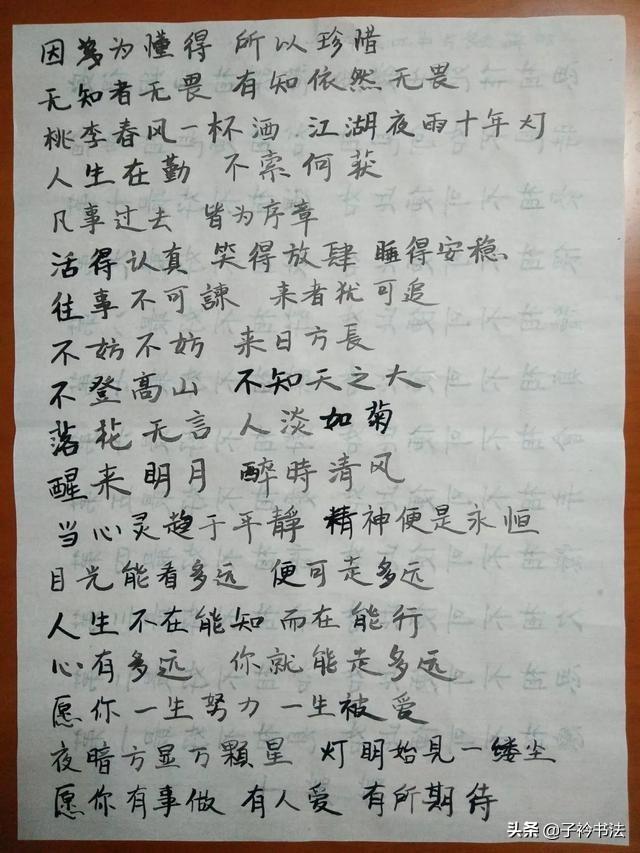 因为为懂得 所以珍惜
无知者无畏 有知依然无畏
桃李春风一杯酒 江湖夜雨十年灯
人生在勤 不索何获
凡事过去 皆为序章
活得认真 笑得放肆 睡得安稳
往事不可諫 来者犹可追
不妨不妨 来日方長
不登高山 不知天之大
落花无言 人淡如菊
醒来明月 醉時清风
当心灵趋于平靜 精神便是永恒
目光能看多远 便可走多远
人生不在能知 而在能行
心有多远 你就能走多远
愿你一生努力 一生被爱
夜暗方显万顆星 灯明始見一缕尘
愿你有事做 有人爱 有所期待
头条 @子衿书法